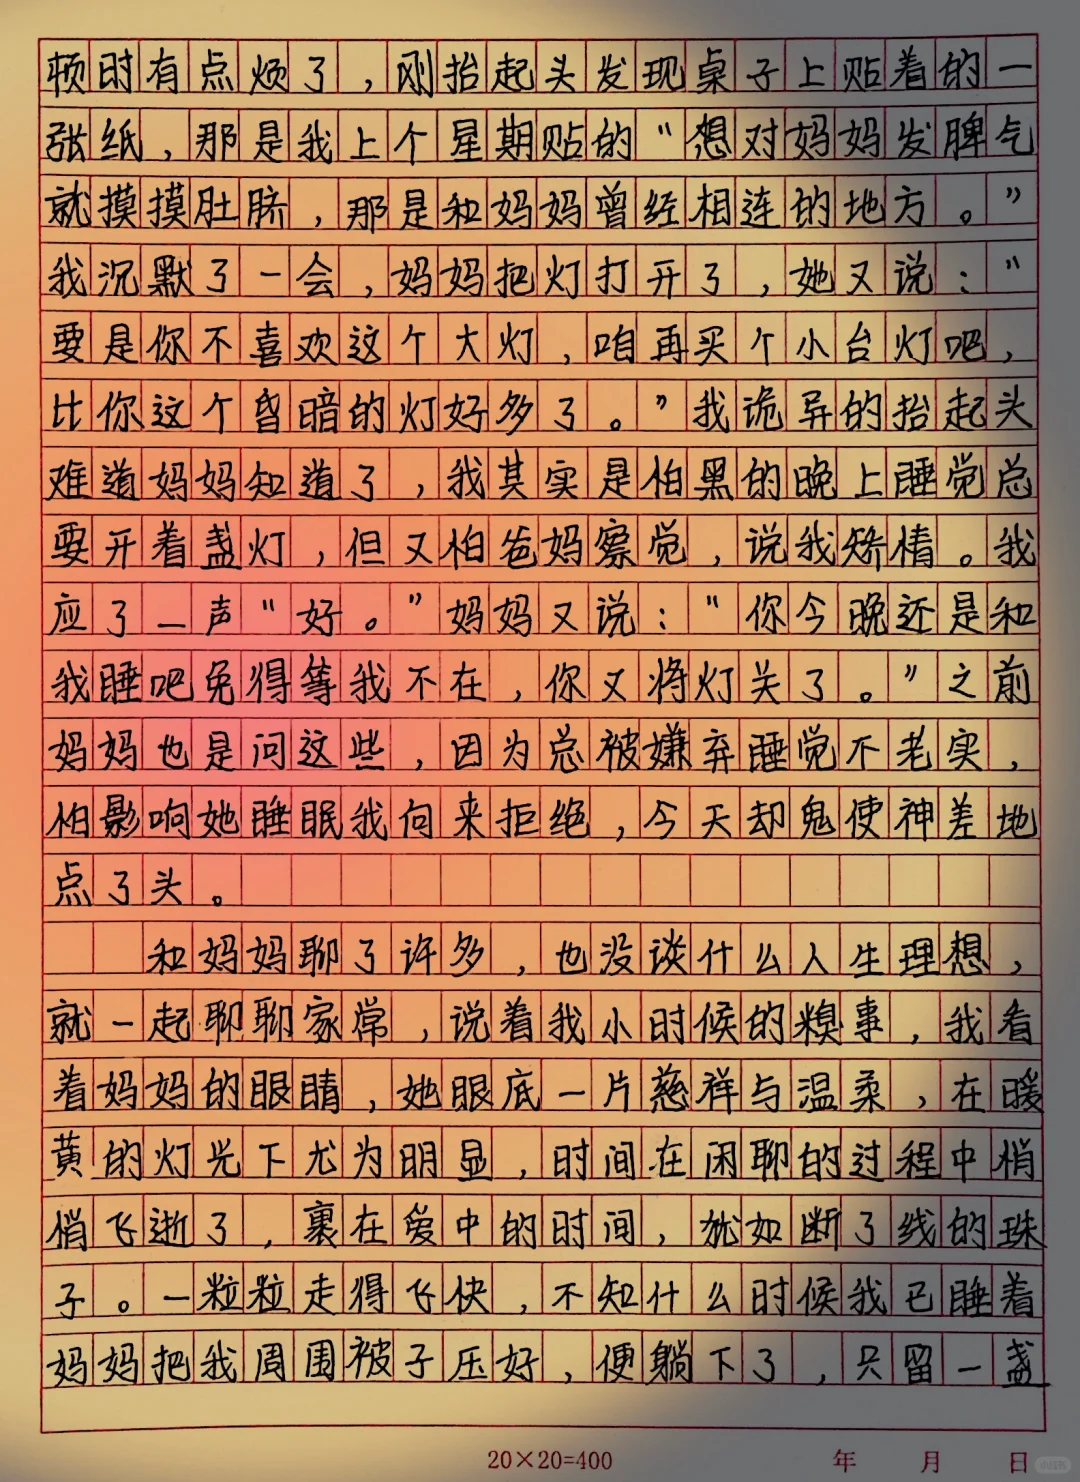 顿时有点烦了，刚抬起头发现桌子上贴着的一
张纸，那是我上个星期贴的“想对妈妈发脾气
就摸摸肚脐，那是和妈妈曾经相连的地方。”
我沉默了一会，妈妈把灯打开了，她又说：“
要是你不喜欢这个大灯，咱再买个小台灯吧，
比你这个昏暗的灯好多了。”我诡异的抬起头
难道妈妈知道了，我其实是怕黑的晚上睡觉总
要开着盏灯，但又怕爸妈察觉，说我矫情。我
应了一声“好。”妈妈又说：“你今晚还是和
我睡吧免得等我不在，你又将灯关了。”之前
妈妈也是问这些，因为总被嫌弃睡觉不老实，
怕影响她睡眠我向来拒绝，今天却鬼使神差地
点了头。
和妈妈聊了许多，也没谈什么人生理想，
就一起聊聊家常，说着我小时候的糗事，我看
着妈妈的眼睛，她眼底一片慈祥与温柔，在暖
黄的灯光下尤为明显，时间在闲聊的过程中悄
悄飞逝了，裹在爱中的时间，就如断了线的珠
子。一粒粒走得飞快，不知什么时候我已睡着
妈妈把我周围被子压好，便躺下了，只留一盏
20×20=400 年 月 日